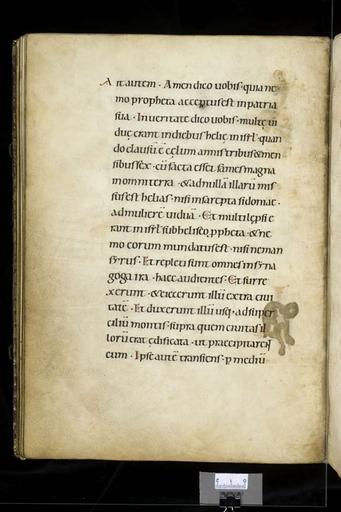 A it autem · Amen dico uobis · quia ne
mo propheta acceptus est in patria
sua · In ueritate dico uobis · multę ui
duę erant in diebus helię in isrl̄ · quan
do clausū ē cęlum annis tribus & men
sibus sex · cū facta esset fames magna
in omni terra · & ad nullā illarū mis
sus est helias · nisi in sarepta sidoniae ·
ad mulierē uiduā · Et multi lepsi e
rant in isrl̄ sub heliseo ppheta · & ne
mo eorum mundatus est · nisi neman
syrus · Et repleti sunt omnes in syna
goga ira · haec audientes · Et surre
xerunt · & eiecerunt illū extra ciui
tatē · Et duxerunt illū usq · ad super
ciliū montis · supra quem ciuitas il
lorū erat ędificata · ut praecipitarent
eum · Ipse autē transiens · p mediū